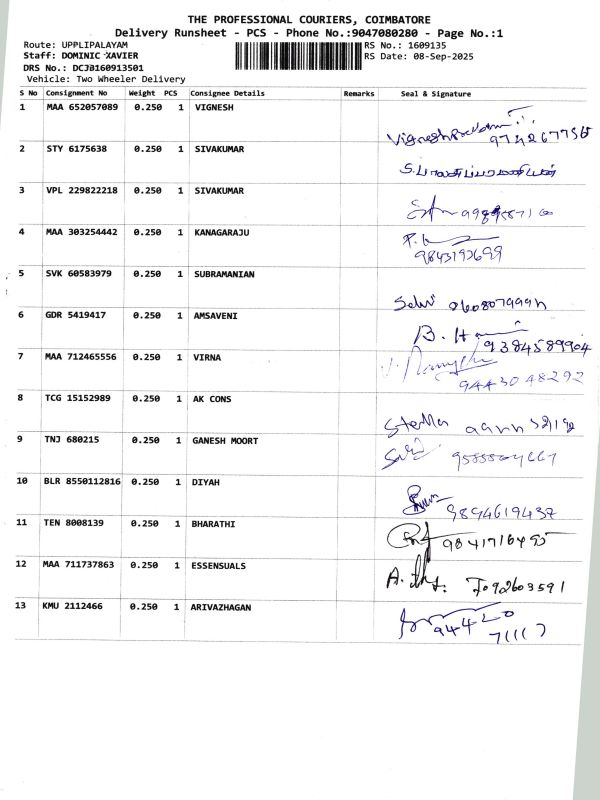 THE PROFESSIONAL COURIERS, COIMBATORE
Delivery Runsheet - PCS - Phone No.:9047080280 - Page No.:1
Route: UPPLIPALAYAM RS No.: 1609135
Staff: DOMINIC XAVIER RS Date: 08-Sep-2025
DRS No.: DCJ0160913501
Vehicle: Two Wheeler Delivery
S No Consignment No Weight PCS Consignee Details Remarks Seal & Signature
1 MAA 652057089 0.250 1 VIGNESH
2 STY 6175638 0.250 1 SIVAKUMAR
3 VPL 229822218 0.250 1 SIVAKUMAR
4 MAA 303254442 0.250 1 KANAGARAJU
9843192699
5 SVK 60583979 0.250 1 SUBRAMANIAN
Selvi
6 GDR 5419417 0.250 1 AMSAVENI
9384589904
7 MAA 712465556 0.250 1 VIRNA
9443048292
8 TCG 15152989 0.250 1 AK CONS
Stella
9 TNJ 680215 0.250 1 GANESH MOORT
10 BLR 8550112816 0.250 1 DIYAH
9894619437
11 TEN 8008139 0.250 1 BHARATHI
12 MAA 711737863 0.250 1 ESSENSUALS
13 KMU 2112466 0.250 1 ARIVAZHAGAN